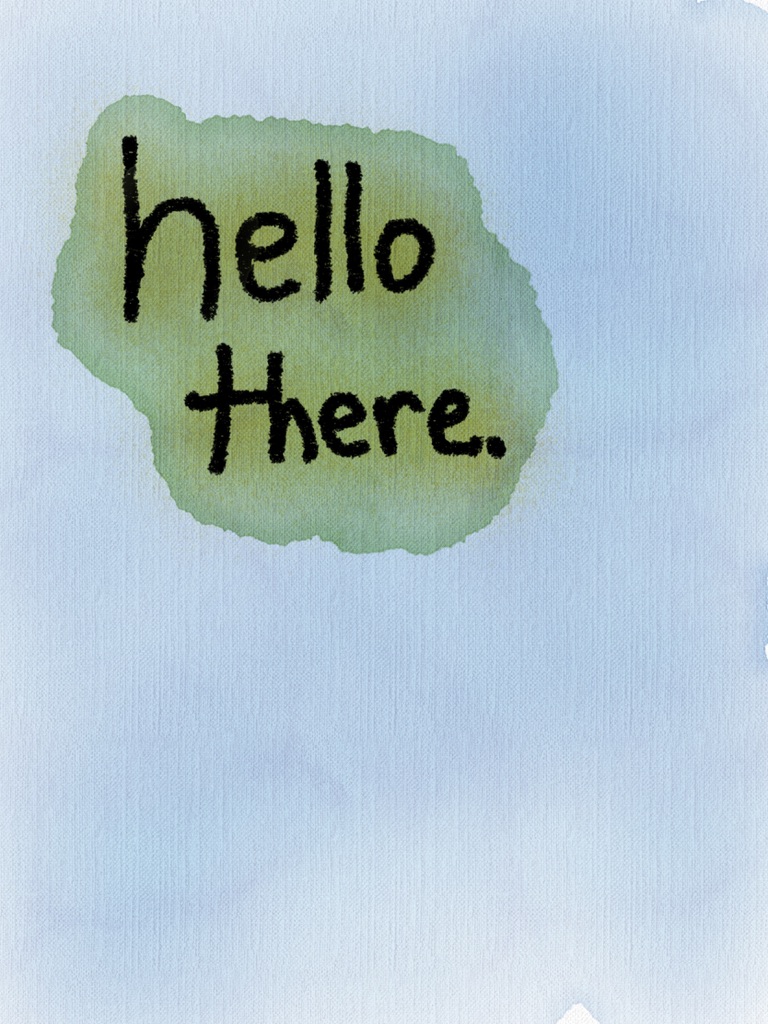 hello
there.